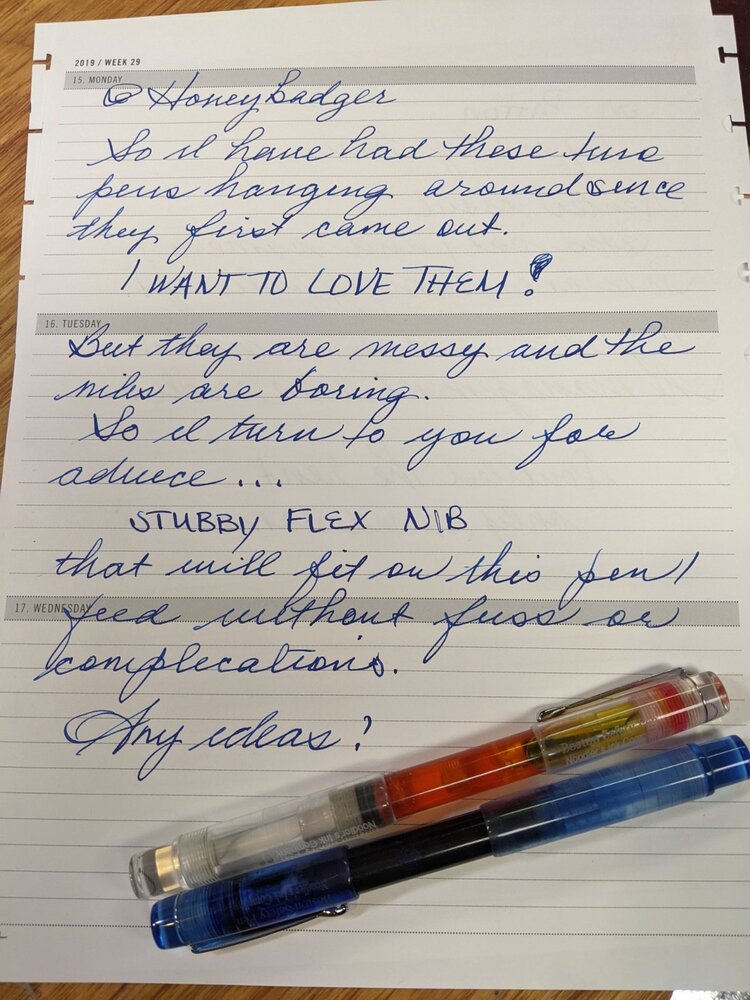 2019 / WEEK 29
15. MONDAY
@HoneyBadger
So I have had these two
pens hanging around since
they first came out.
I WANT TO LOVE THEM!
16. TUESDAY
But they are messy and the
nibs are boring.
So I turn to you for
advice...
STUBBY FLEX NIB
that will fit on this pen/
17. WEDNESDAY
feed without fuss or
complications.
Any ideas?
Boston Safety Pen
Noodler's Ink